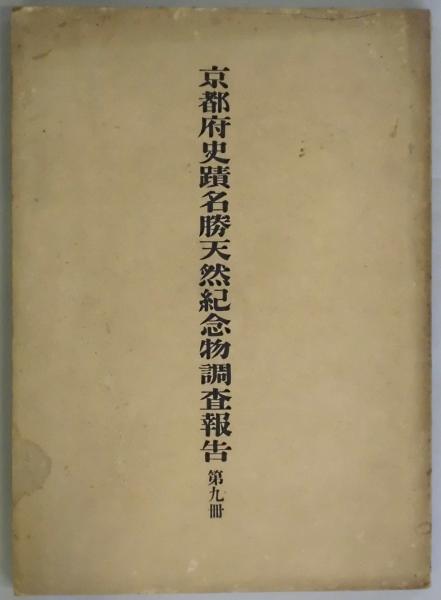 京都府史蹟名勝天然紀念物調査報告 第九冊